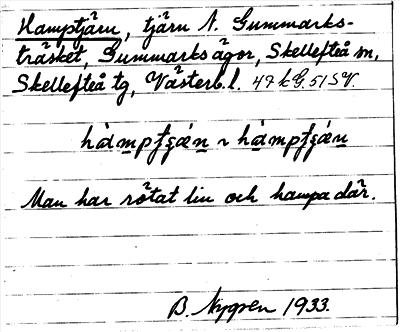 Hamptjärn, tjärn N. Gummarks-
träsket, Gummarks ägor, Skellefteå sn,
Skellefteå tg, Västerb. l. 49 k G. 51 SV.
Man har rötat lin och hampa där.
B. Nygren 1933.